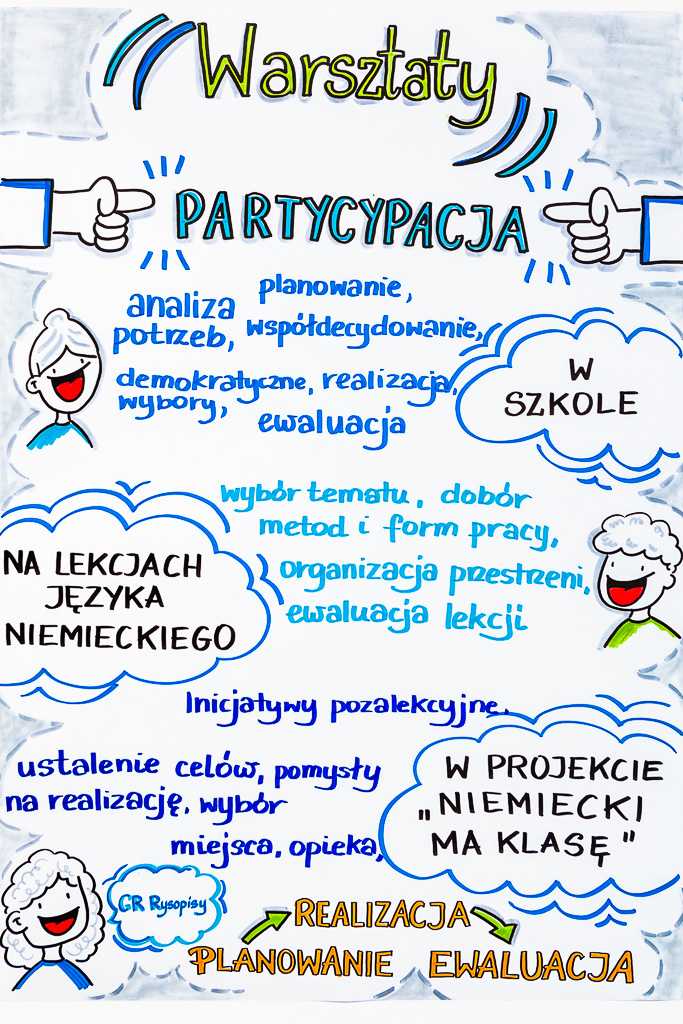 Warsztaty
PARTYCYPACJA
planowanie,
analiza
potrzeb, współdecydowanie,
demokratyczne, realizacja,
wybory,
ewaluacja
W
SZKOLE
wybór tematu, dobór
metod i form pracy,
organizacja przestrzeni,
ewaluacja lekcji
NA LEKCJACH
JĘZYKA
NIEMIECKIEGO
Inicjatywy pozalekcyjne.
ustalenie celów, pomysły
na realizację, wybór
miejsca, opieka,
W PROJEKCIE
„NIEMIECKI
MA KLASĘ"
GR Rysopisy
REALIZACJA
PLANOWANIE EWALUACJA